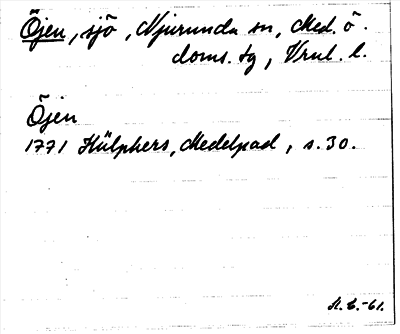 Öjen, sjö, Njurunda sn, Med. ö.
doms. tg, Vrul. l.
Öjen
1771 Hülphers, Medelpad, s. 30.